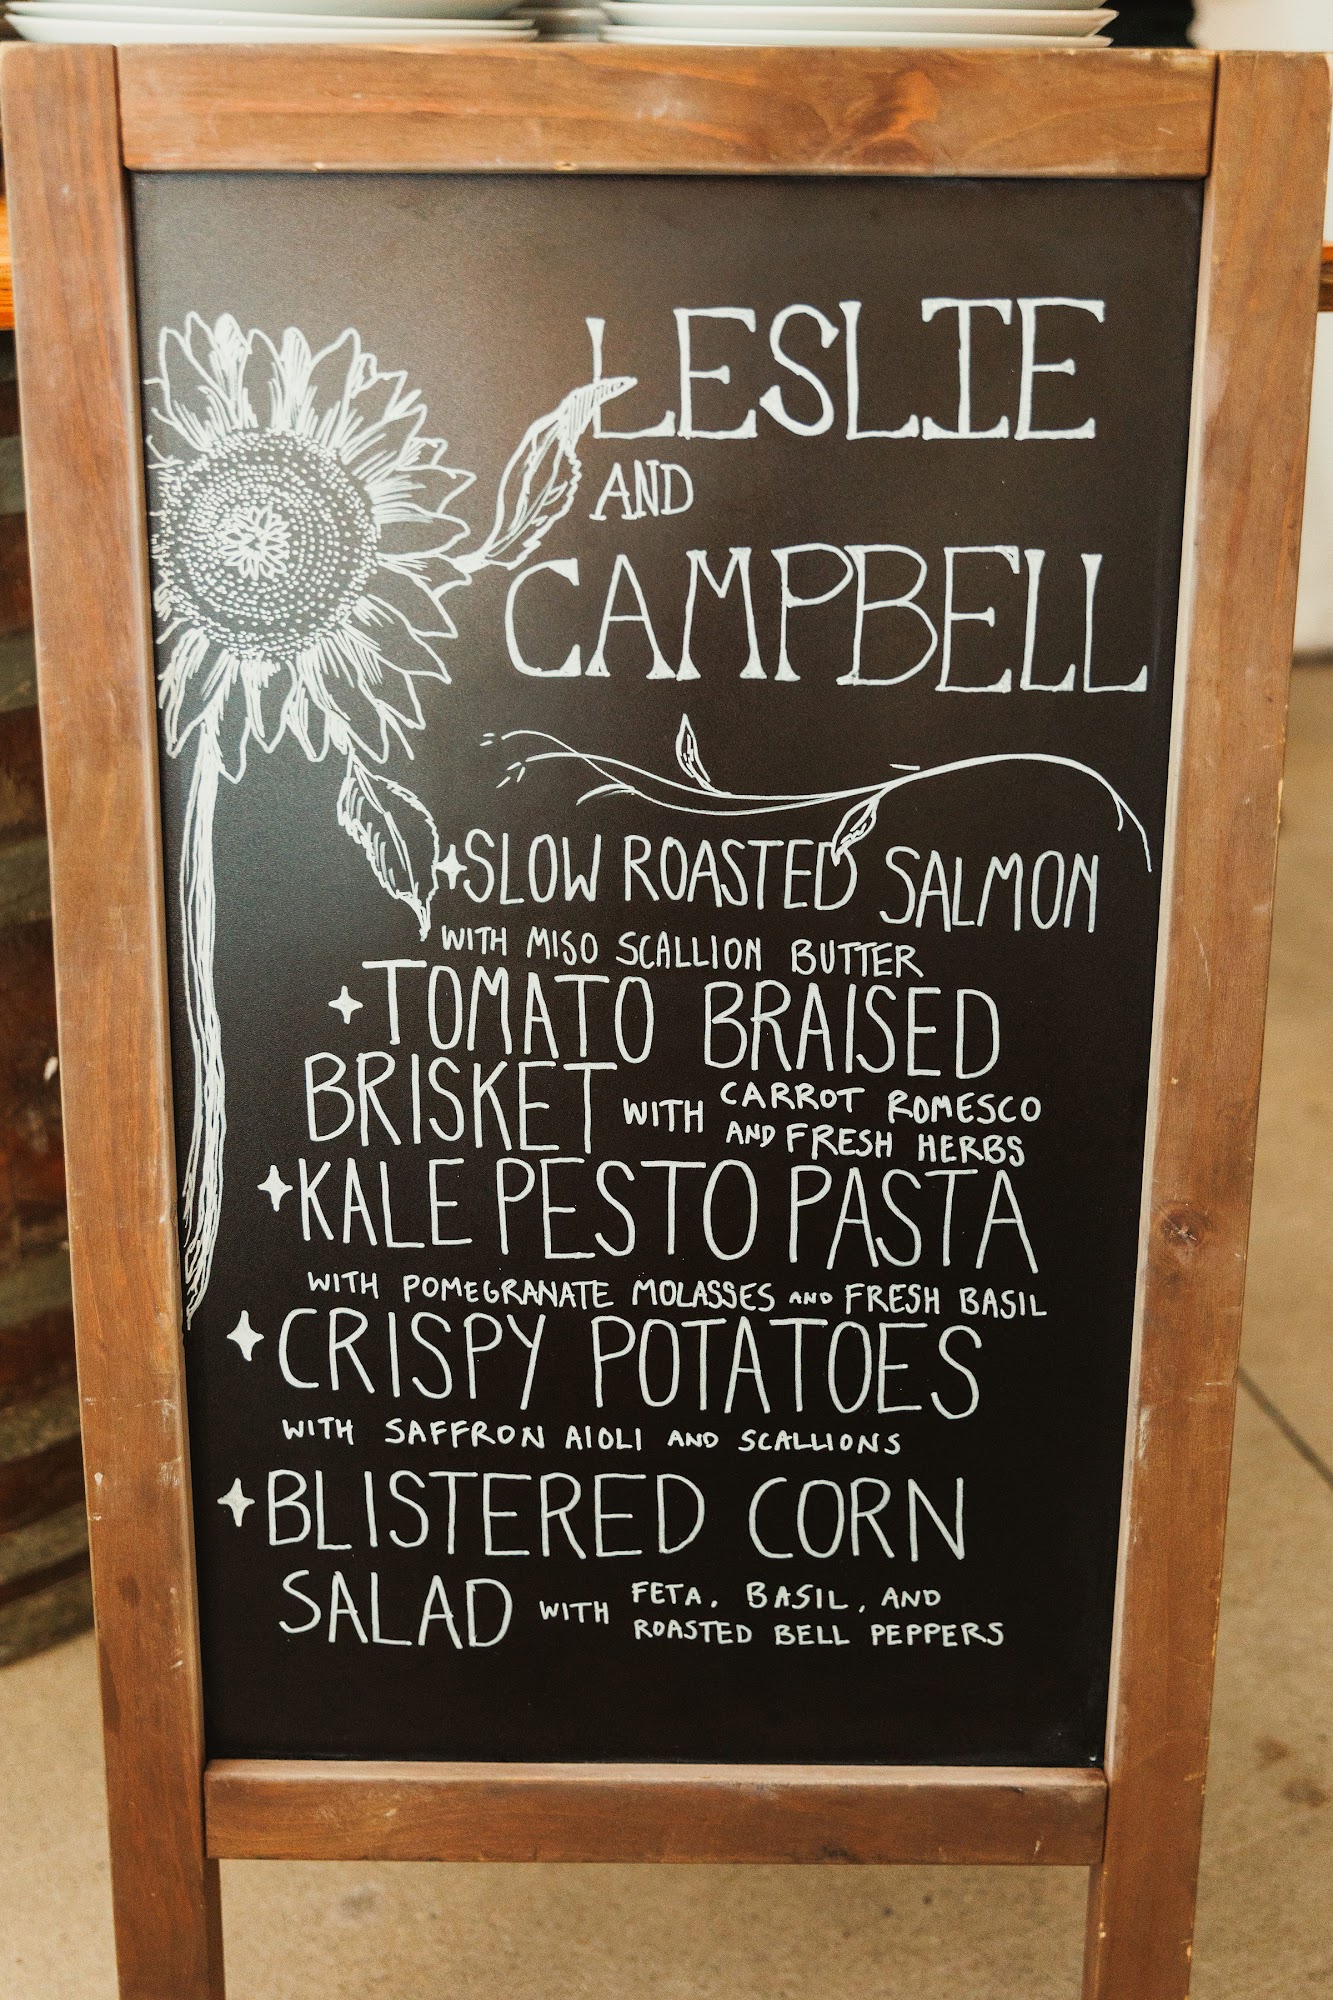 LESLIE
AND
CAMPBELL
SLOW ROASTED SALMON
WITH MISO SCALLION BUTTER
TOMATO BRAISED
BRISKET WITH CARROT ROMESCO
AND FRESH HERBS
KALE PESTO PASTA
WITH POMEGRANATE MOLASSES AND FRESH BASIL
CRISPY POTATOES
WITH SAFFRON AIOLI AND SCALLIONS
BLISTERED CORN
SALAD WITH FETA, BASIL, AND
ROASTED BELL PEPPERS